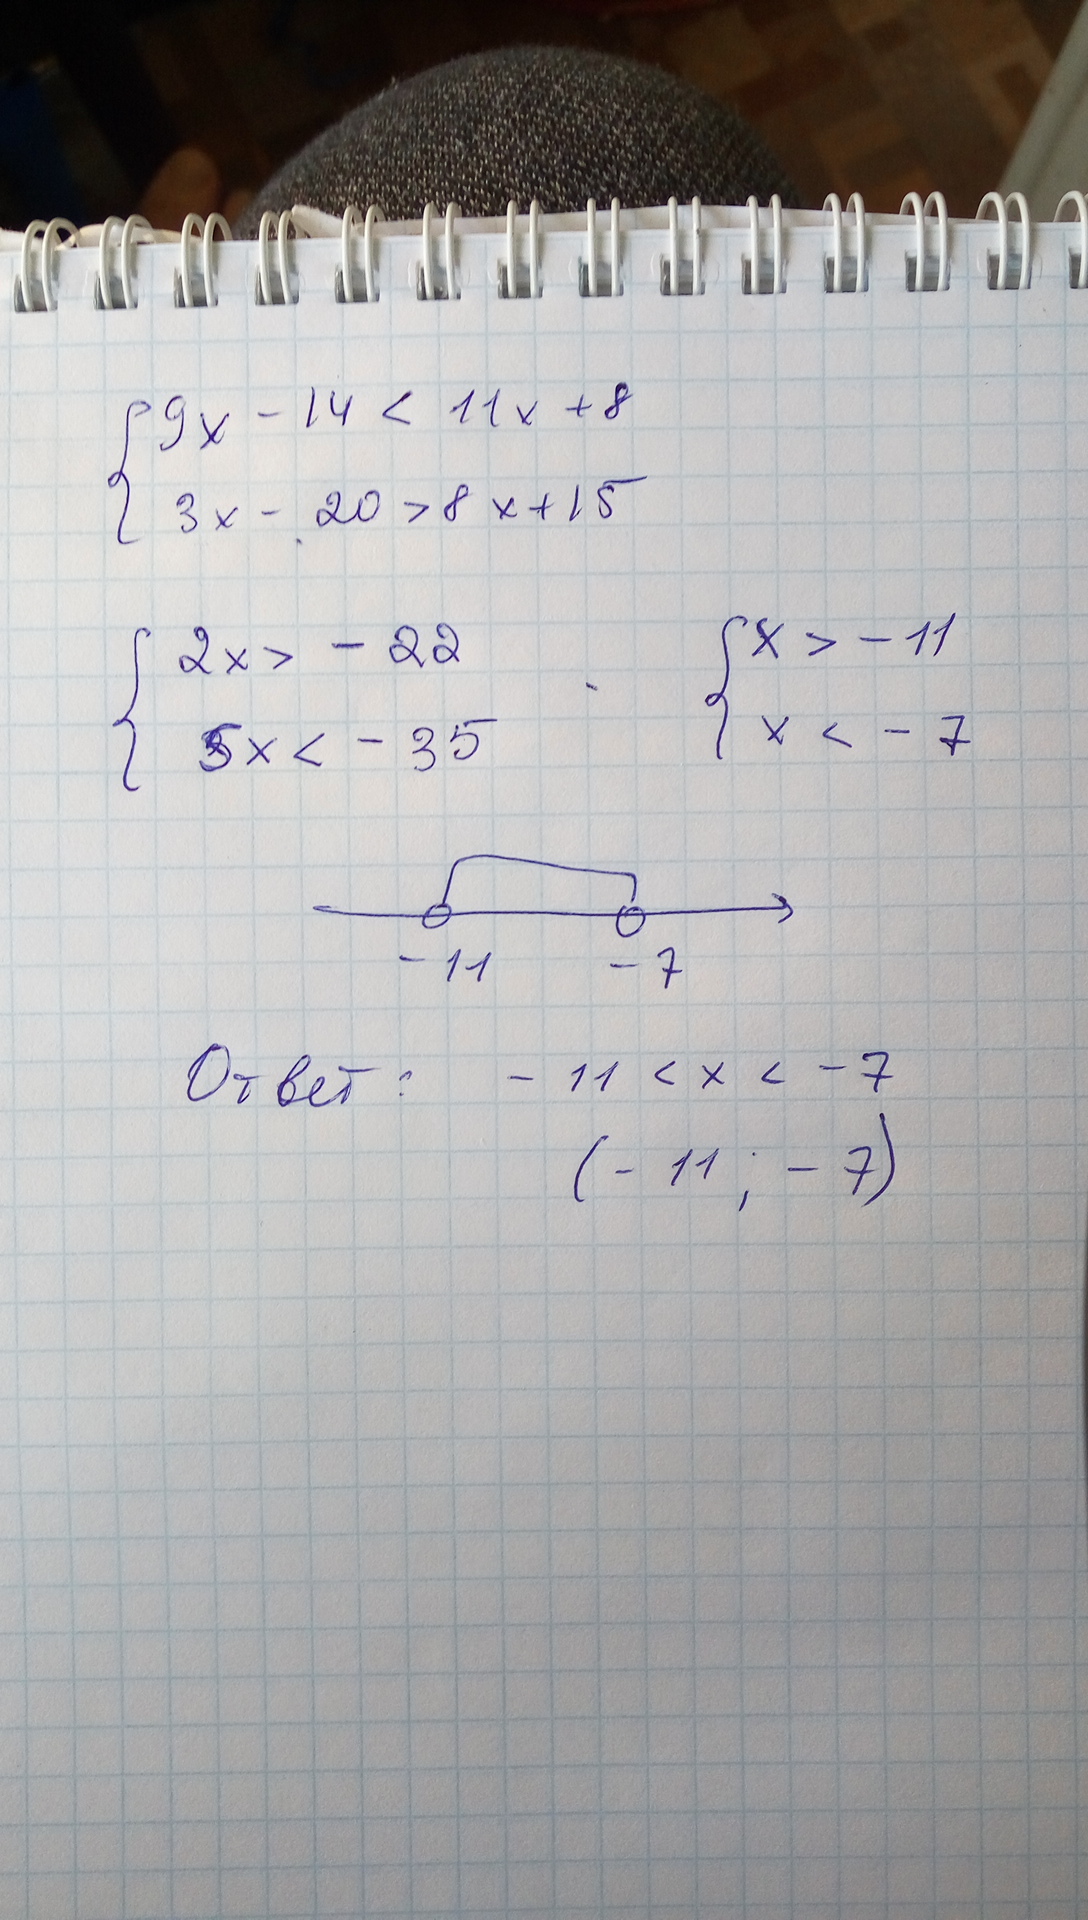 9x - 14 < 11x + 8
3x - 20 > 8x + 15
2x > - 22
5x < - 35
x > - 11
x < - 7
- 11
- 7
Ответ: - 11 < x < - 7
(- 11 ; - 7)